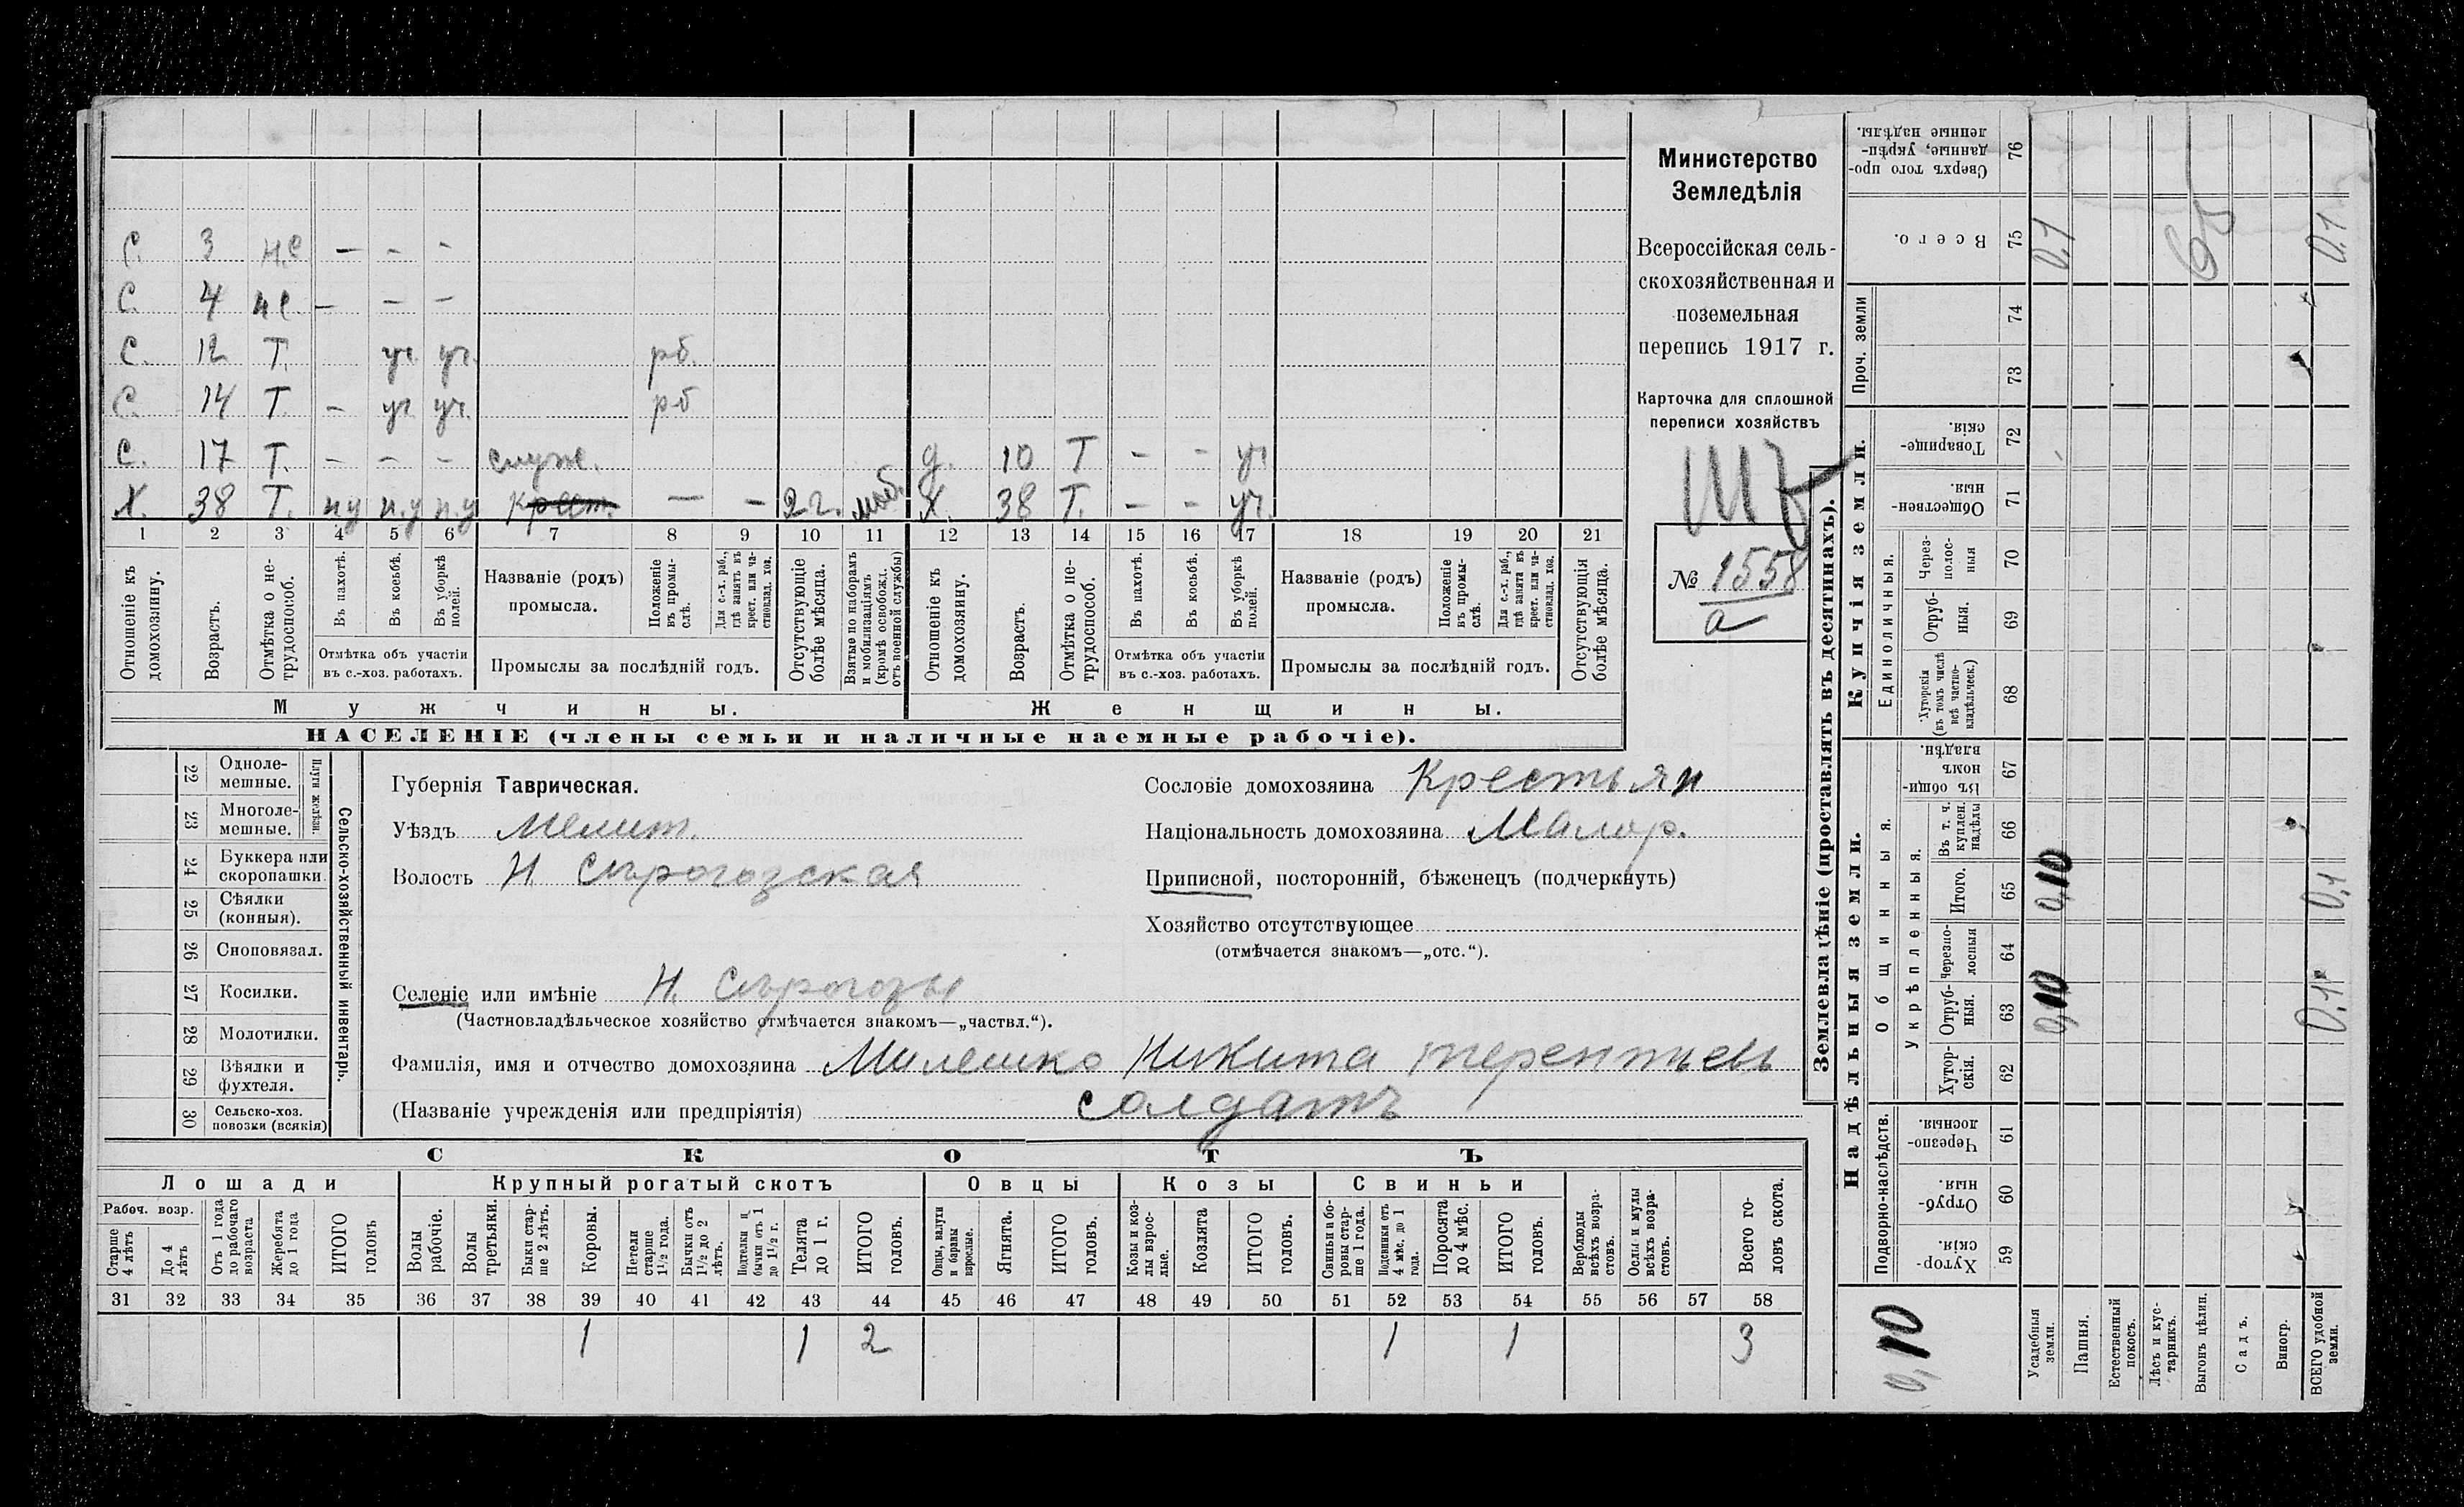 С. 3 н.с – – –
С. 4 нс – – –
С. 12 Т. уч. уч. рб.
С. 14 Т. – уч. уч. рб
С. 17 Т. – – – служ. д. 10 Т – – уч
Х. 38 Т. н.у н.у н.у крест. — – 2 г. моб. Х. 38 Т. – – уч.
1 2 3 4 5 6 7 8 9 10 11 12 13 14 15 16 17 18 19 20 21
Отношеніе къ домохозяину.
Возрастъ.
Отмѣтка о не-трудоспособ.
Въ пахотѣ.
Въ косьбѣ.
Въ уборкѣ полей.
Отмѣтка объ участіи въ с.-хоз. работахъ.
Названіе (родъ) промысла.
Положеніе въ промы-слѣ.
Для с.-х. раб., гдѣ занятъ въ крест. или ча-стновлад. хоз.
Промыслы за послѣдній годъ.
Отсутствующіе болѣе мѣсяца.
Взятые по наборамъ и мобилизаціямъ (кромѣ освобожд. отъ военной службы)
Отношеніе къ домохозяину.
Возрастъ.
Отмѣтка о не-трудоспособ.
Въ пахотѣ.
Въ косьбѣ.
Въ уборкѣ полей.
Отмѣтка объ участіи въ с.-хоз. работахъ.
Названіе (родъ) промысла.
Положеніе въ промы-слѣ.
Для с.-х. раб., гдѣ занята въ крест. или ча-стновлад. хоз.
Промыслы за послѣдній годъ.
Отсутствующія болѣе мѣсяца.
Мужчины.
Женщины.
НАСЕЛЕНІЕ (члены семьи и наличные наемные рабочіе).
Министерство
Земледѣлія
Всероссійская сель-
скохозяйственная и
поземельная
перепись 1917 г.
Карточка для сплошной
переписи хозяйствъ
№ 1558
а
22 Одноле-мешные.
23 Многоле-мешные.
Плуги желѣзн.
24 Буккера или скоропашки.
25 Сѣялки (конныя).
26 Сноповязал.
27 Косилки.
28 Молотилки.
29 Вѣялки и фухтеля.
30 Сельско-хоз. повозки (всякія)
Сельско-хозяйственный инвентарь.
Губернія Таврическая.
Уѣздъ Мелит.
Волость Н. Сѣрогозская
Селеніе или имѣніе Н. Сѣрогозы
(Частновладѣльческое хозяйство отмѣчается знакомъ—„частвл.“).
Сословіе домохозяина Крестьян
Національность домохозяина Малор.
Приписной, посторонній, бѣженецъ (подчеркнуть)
Хозяйство отсутствующее
(отмѣчается знакомъ—„отс.“).
Фамилія, имя и отчество домохозяина Милешко Никита терентьевъ
(Названіе учрежденія или предпріятія) солдатъ
СКОТЪ
Лошади
Крупный рогатый скотъ
Овцы
Козы
Свиньи
Рабоч. возр.
Старше 4 лѣтъ
До 4 лѣтъ
Отъ 1 года до рабочаго возраста
Жеребята до 1 года
ИТОГО головъ
Волы рабочіе.
Волы третьяки.
Быки стар-ше 2 лѣтъ.
Коровы.
Нетели старше 1½ года.
Бычки отъ 1½ до 2 лѣтъ.
Подтелки и бычки отъ 1 до 1½ г.
Телята до 1 г.
ИТОГО головъ.
Овцы, валухи и бараны взрослые.
Ягнята.
ИТОГО головъ.
Козы и коз-лы взрос-лые.
Козлята
ИТОГО головъ.
Свиньи и бо-ровы стар-ше 1 года.
Подсвинки отъ 4 мѣс. до 1 года.
Поросята до 4 мѣс.
ИТОГО головъ.
Верблюды всѣхъ возра-стовъ.
Ослы и мулы всѣхъ возра-стовъ.
Всего го-ловъ скота.
31 32 33 34 35 36 37 38 39 40 41 42 43 44 45 46 47 48 49 50 51 52 53 54 55 56 57 58
1 1 2 1 1 3
Землевладѣніе (проставлять въ десятинахъ).
Надѣльныя земли.
Купчія земли.
Проч. земли
Подворно-наслѣдств.
Общинныя.
Укрѣпленныя.
Единоличныя.
Хутор-скія. 59
Отруб-ныя. 60
Черезпо-лосныя. 61
Хутор-скія. 62
Отруб-ныя. 63
Черезпо-лосныя 64
Итого. 65
Въ т. ч. куплен. надѣлы 66
Въ общин-номъ владѣн. 67
Хуторскія (въ томъ числѣ всѣ частно-владѣльческ.) 68
Отруб-ныя. 69
Через-полос-ныя 70
Обществен-ныя. 71
Товарище-скія. 72
73
74
Всего. 75
Сверхъ того про-данные, укрѣп-ленные надѣлы. 76
Усадебныя земли.
Пашня.
Естественный покосъ.
Лѣсъ и кус-тарникъ.
Выгонъ цѣлин.
Садъ.
Виногр.
ВСЕГО удобной земли.
0,10
0,10
0,10
0,1
0,1
0,1
0,1